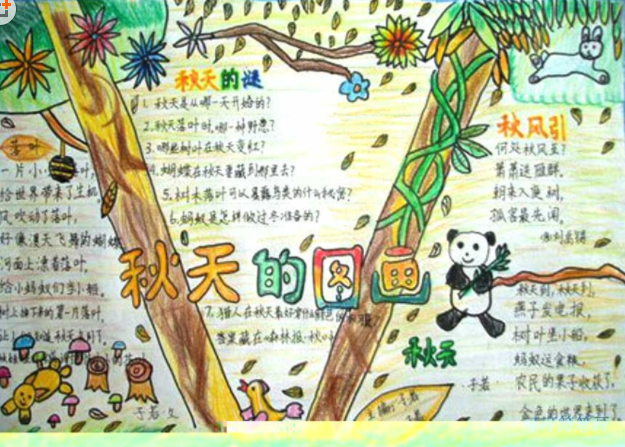 秋天的谜
1. 秋天是从哪一天开始的?
2. 秋天落叶时,哪一种野
3. 哪些树叶在秋天变红?
4. 蝴蝶在秋天要藏到哪里去?
5. 树木落叶可以暴露鸟类的什么秘密?
6. 蚂蚁是怎样做过冬准备的?
7. 猎人在秋天
答案藏在《森林报·秋
落叶
一片小小
给世界带来了生机
风吹动了落叶,
好像漫天飞舞的蝴蝶
河面上漂着落叶,
给小蚂蚁们当小船。
树上掉下的第一片落叶,
让 知道秋天来到了。
于若 文
秋天的图画
秋风引
何处秋风至?
萧萧送雁群。
朝来入庭树,
孤客最先闻。
刘禹锡
秋天
秋天到,秋天到,
燕子发电报,
树叶当小船,
蚂蚁运食粮,
农民的果子收获了,
金色的世界来到了。
于若
主编:于若